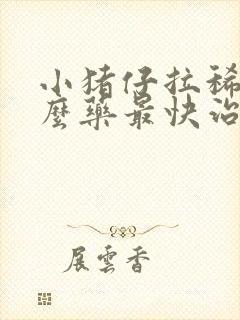 小猪仔拉稀
麽藥最快治
展雲香